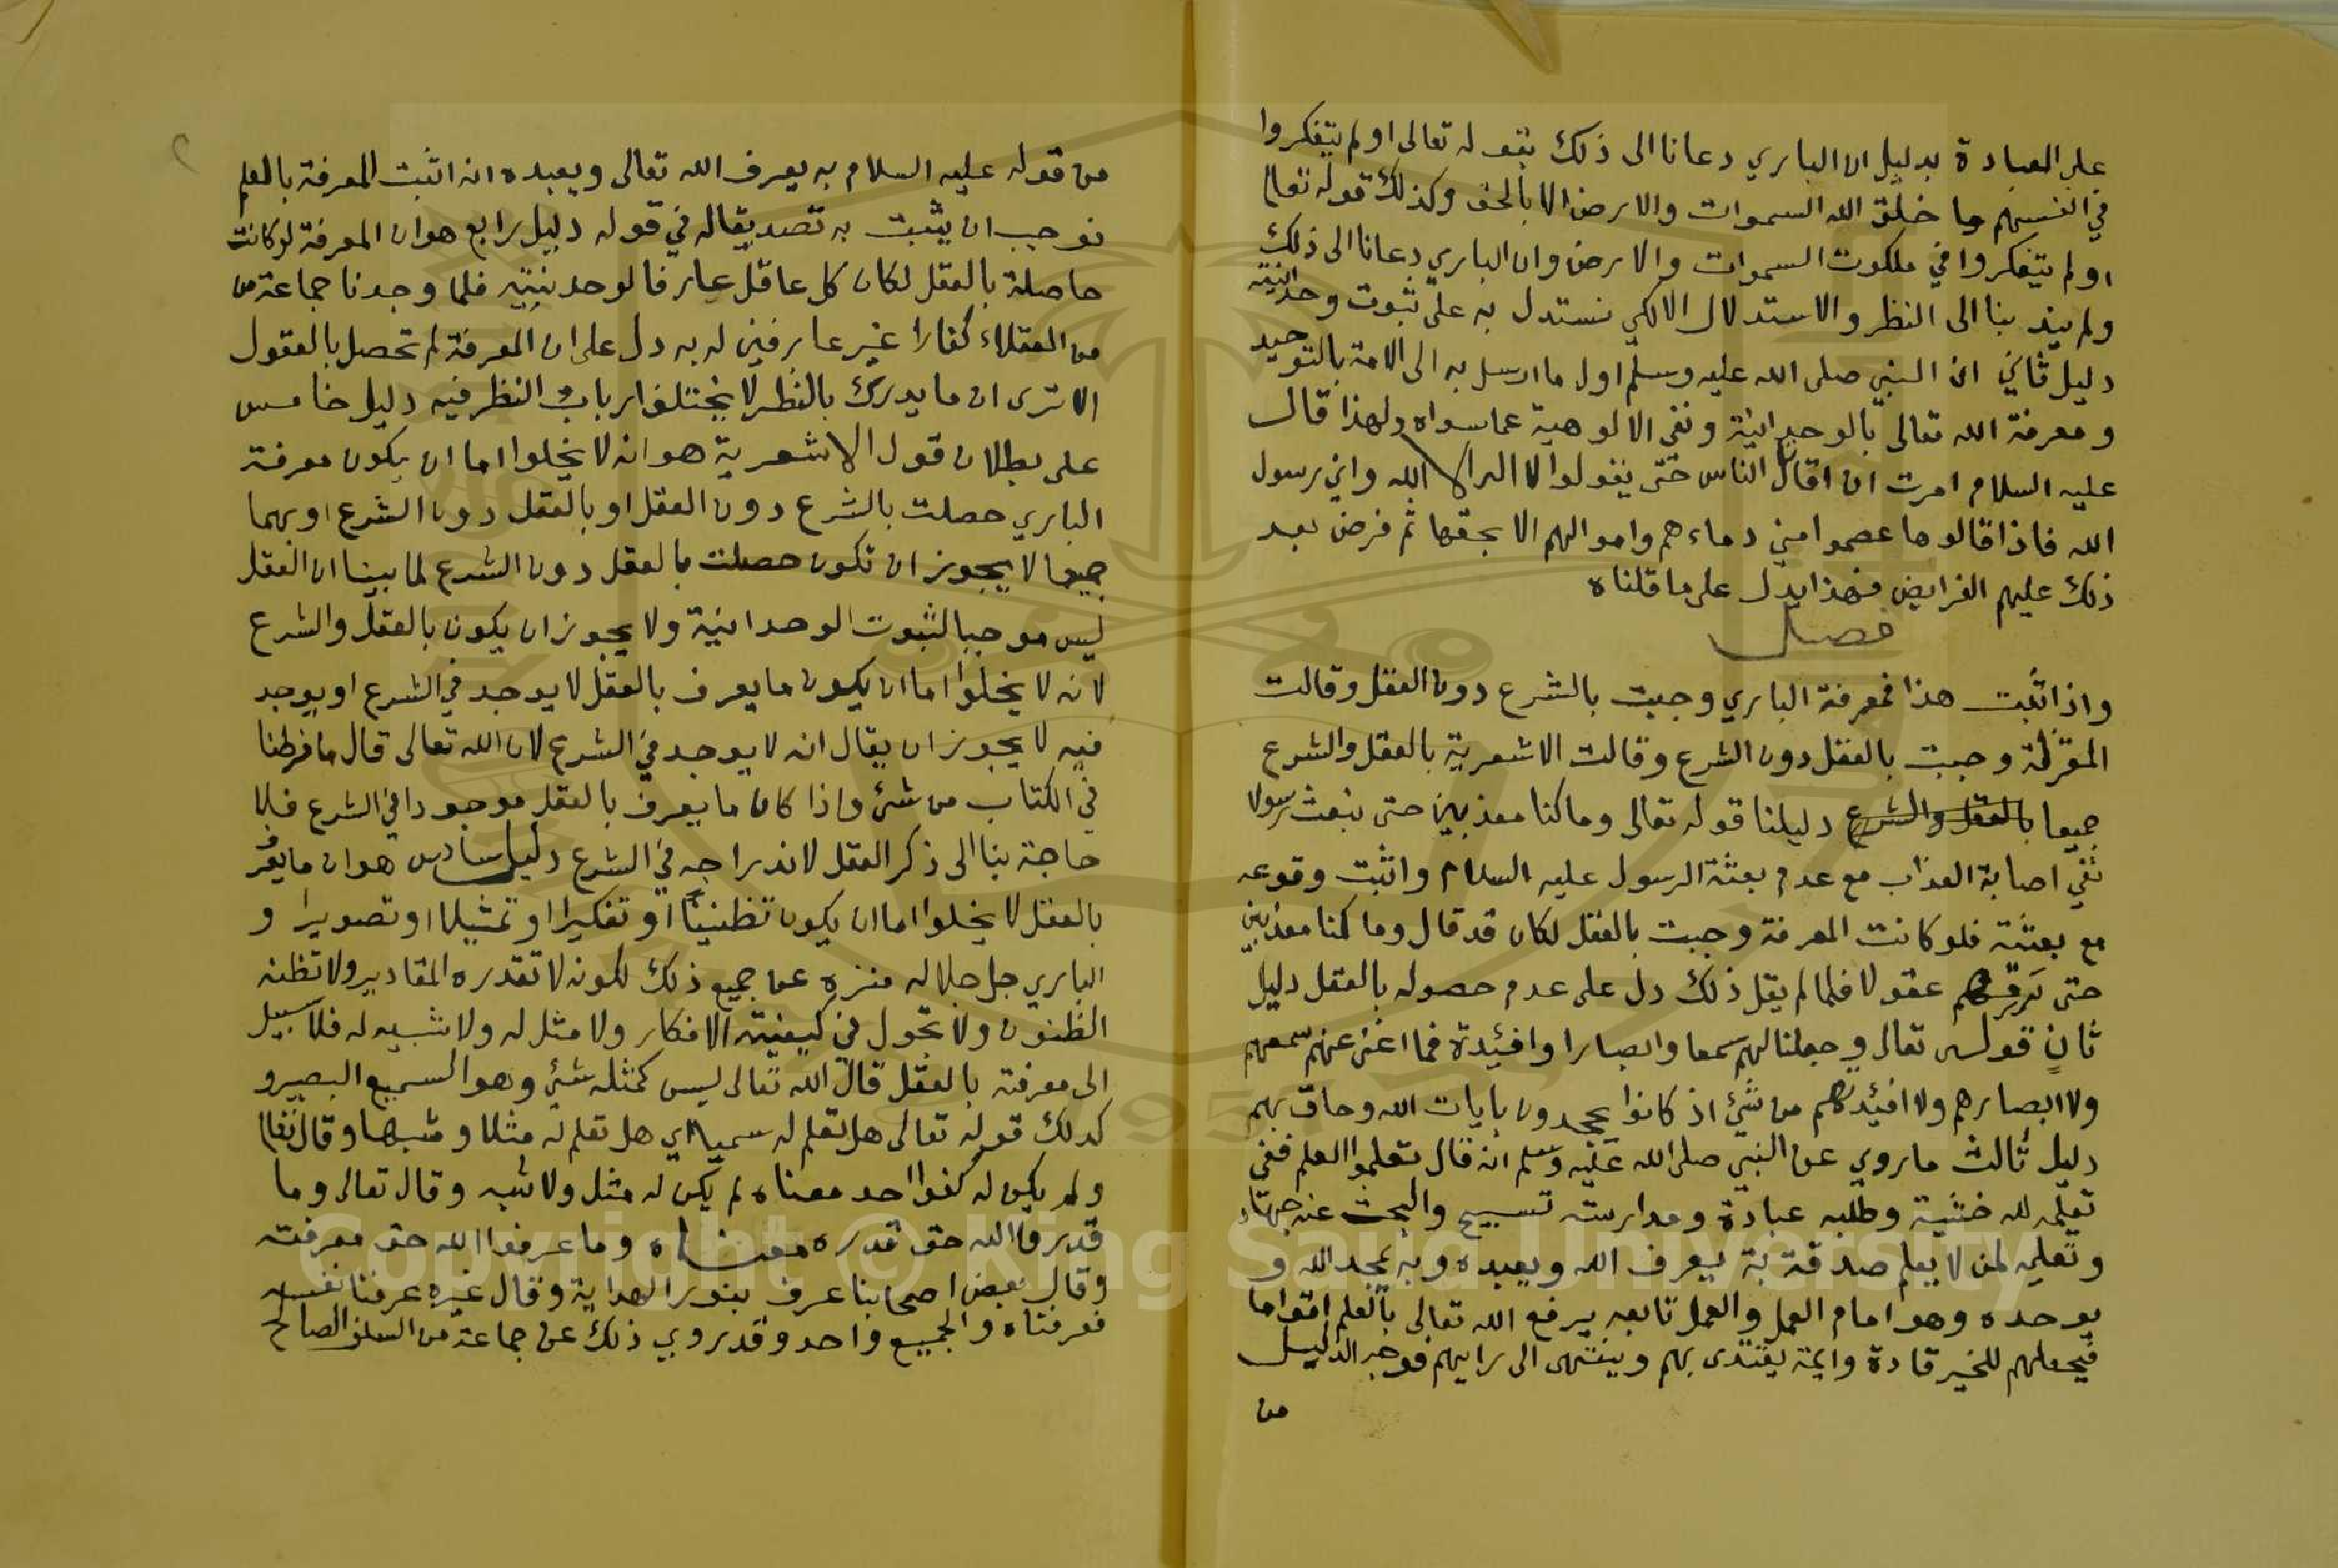 على العبادة بدليل ان الباري دعانا الى ذلك بقوله تعالى اولم يتفكروا
في انفسهم ما خلق الله السموات والارض الا بالحق وكذلك قوله تعالى
اولم يتفكروا في ملكوت السموات والارض وان الباري دعانا الى ذلك
ولم يند بنا الى النظر والاستدلال الا لكي نستدل به على ثبوت وحدانيته
دليل ثاني ان النبي صلى الله عليه وسلم اول ما ارسل به الى الامة بالتوحيد
ومعرفة الله تعالى بالوحدانية ونفي الالوهية عما سواه ولهذا قال
عليه السلام امرت ان اقاتل الناس حتى يقولوا لا اله الا الله واني رسول
الله فاذا قالوها عصموا مني دماءهم واموالهم الا بحقها ثم فرض بعد
ذلك عليهم الفرايض فهذا يدل على ما قلناه
فصل
واذا ثبت هذا فمعرفة الباري وجبت بالشرع دون العقل وقالت
المعتزلة وجبت بالعقل دون الشرع وقالت الاشعرية بالعقل والشرع
جميعا بالعقل والشرع دليلنا قوله تعالى وما كنا معذبين حتى نبعث رسولا
نفي اصابة العذاب مع عدم بعثة الرسول عليه السلام واثبت وقوعه
مع بعثته فلو كانت المعرفة وجبت بالعقل لكان قد قال وما كنا معذبين
حتى نرزقهم عقولا فلما لم يقل ذلك دل على عدم حصوله بالعقل دليل
ثانٍ قوله تعالى وجعلنا لهم سمعا وابصارا وافئيدة فما اغنى عنهم سمعهم
ولا ابصارهم ولا افئيدتهم من شئ اذ كانوا يجحدون بايات الله وحاق بهم
دليل ثالث ما روي عن النبي صلى الله عليه وسلم انه قال تعلموا العلم ففي
تعلمه لله خشية وطلبه عبادة ومدارسته تسبيح والبحث عنه جهاد
وتعليمه لمن لا يعلم صدقة به يعرف الله ويعبده وبه يمجد الله و
يوحده وهو امام العمل والعمل تابعه يرفع الله تعالى بالعلم اقواما
فيجعلهم للخير قادة وايمة يقتدى بهم وينتهى الى رايهم فوجه الدليل
من
من قوله عليه السلام به يعرف الله تعالى ويعبده انه اثبت المعرفة بالعلم
فوجب ان يثبت به تصديقا له في قوله دليل رابع هو ان المعرفة لو كانت
حاصلة بالعقل لكان كل عاقل عارفا لوحدنيته فلما وجدنا جماعة من
من العقلاء كفارا غير عارفين له به دل على ان المعرفة لم تحصل بالعقول
الا ترى ان ما يدرك بالنظر لا يختلف ارباب النظر فيه دليل خامس
على بطلان قول الاشعرية هو انه لا يخلوا اما ان يكون معرفة
الباري حصلت بالشرع دون العقل او بالعقل دون الشرع او بهما
جميعا لا يجوز ان تكون حصلت بالعقل دون الشرع لما بينا ان العقل
ليس موجبا لثبوت الوحدانية ولا يجوز ان يكون بالعقل والشرع
لانه لا يخلوا اما ان يكون ما يعرف بالعقل لا يوجد في الشرع او يوجد
فيه لا يجوز ان يقال انه لا يوجد في الشرع لان الله تعالى قال ما فرطنا
في الكتاب من شئ واذا كان ما يعرف بالعقل موجودا في الشرع فلا
حاجة بنا الى ذكر العقل لاندراجه في الشرع دليل سادس هو ان ما يعرف
بالعقل لا يخلوا اما ان يكون تظنينا او تفكيرا او تمثيلا او تصويرا و
الباري جل جلاله منزه عن جميع ذلك لكونه لا تقدره المقادير ولا تظنه
الظنون ولا تجول في كيفيته الافكار ولا مثل له ولا شبيه له فلا سبيل
الى معرفته بالعقل قال الله تعالى ليس كمثله شئ وهو السميع البصير و
كدلك قوله تعالى هل تعلم له سميا اي هل تعلم له مثلا وشبها وقال تعالى
ولم يكن له كفوا احد معناه لم يكن له مثل ولا شبه وقال تعالى وما
قدروا الله حق قدره معناه وما عرفوا الله حق معرفته
وقال بعض اصحابنا عرف بنور الهداية وقال غيره عرفنا نفسه
فعرفناه والجميع واحد وقد روي ذلك عن جماعة من السلف الصالح
Copyright © King Saud University
1957